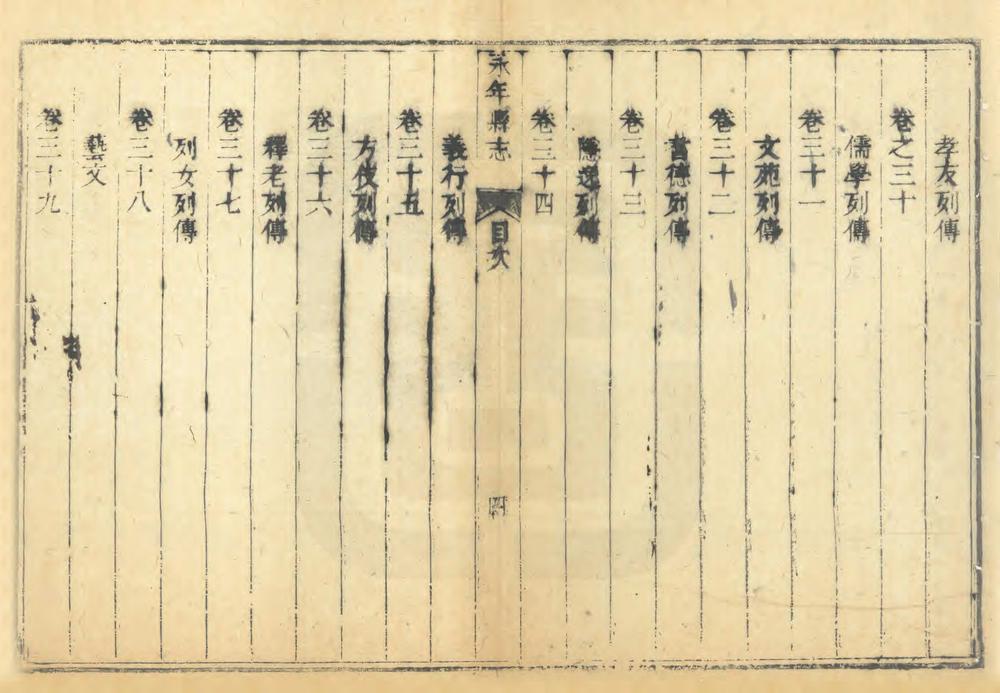 孝友列傳
卷之三十
儒學列傳
卷三十一
文苑列傳
卷三十二
耆德列傳
卷三十三
隱逸列傳
卷三十四
永年縣志
目次
四
義行列傳
卷三十五
方伎列傳
卷三十六
釋老列傳
卷三十七
列女列傳
卷三十八
藝文
卷三十九